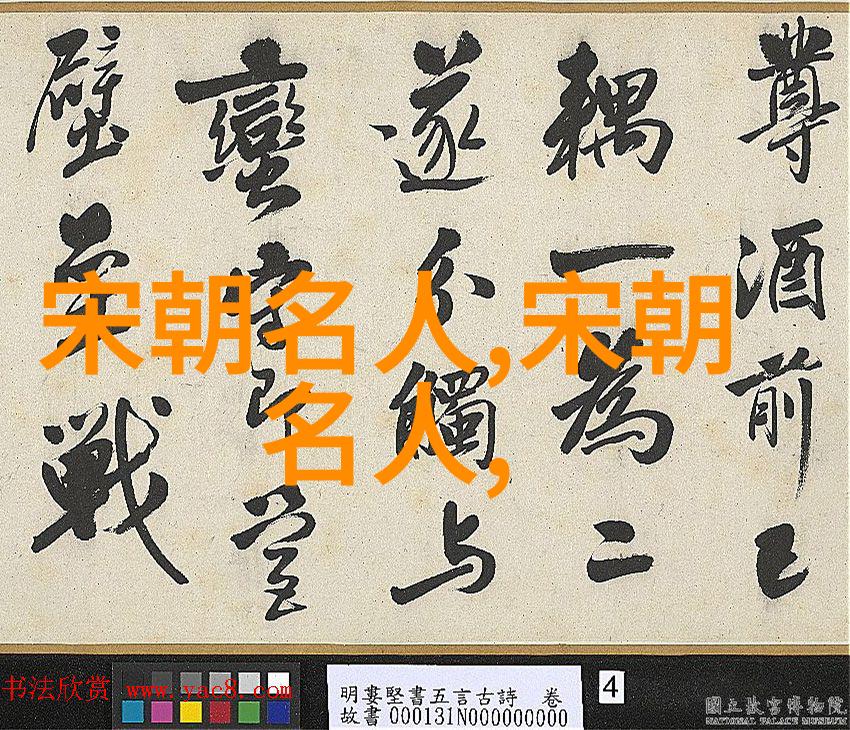 尊酒前已
耦一為二
遂分觸与
蠻
戰
宋朝名人,宋朝
名人,
书法欣赏 www.yac8.com
明婁堅書五言古詩 卷
故書000131N000000000
4
國立故宮博物院
NATIONAL PALACE MUSEUM